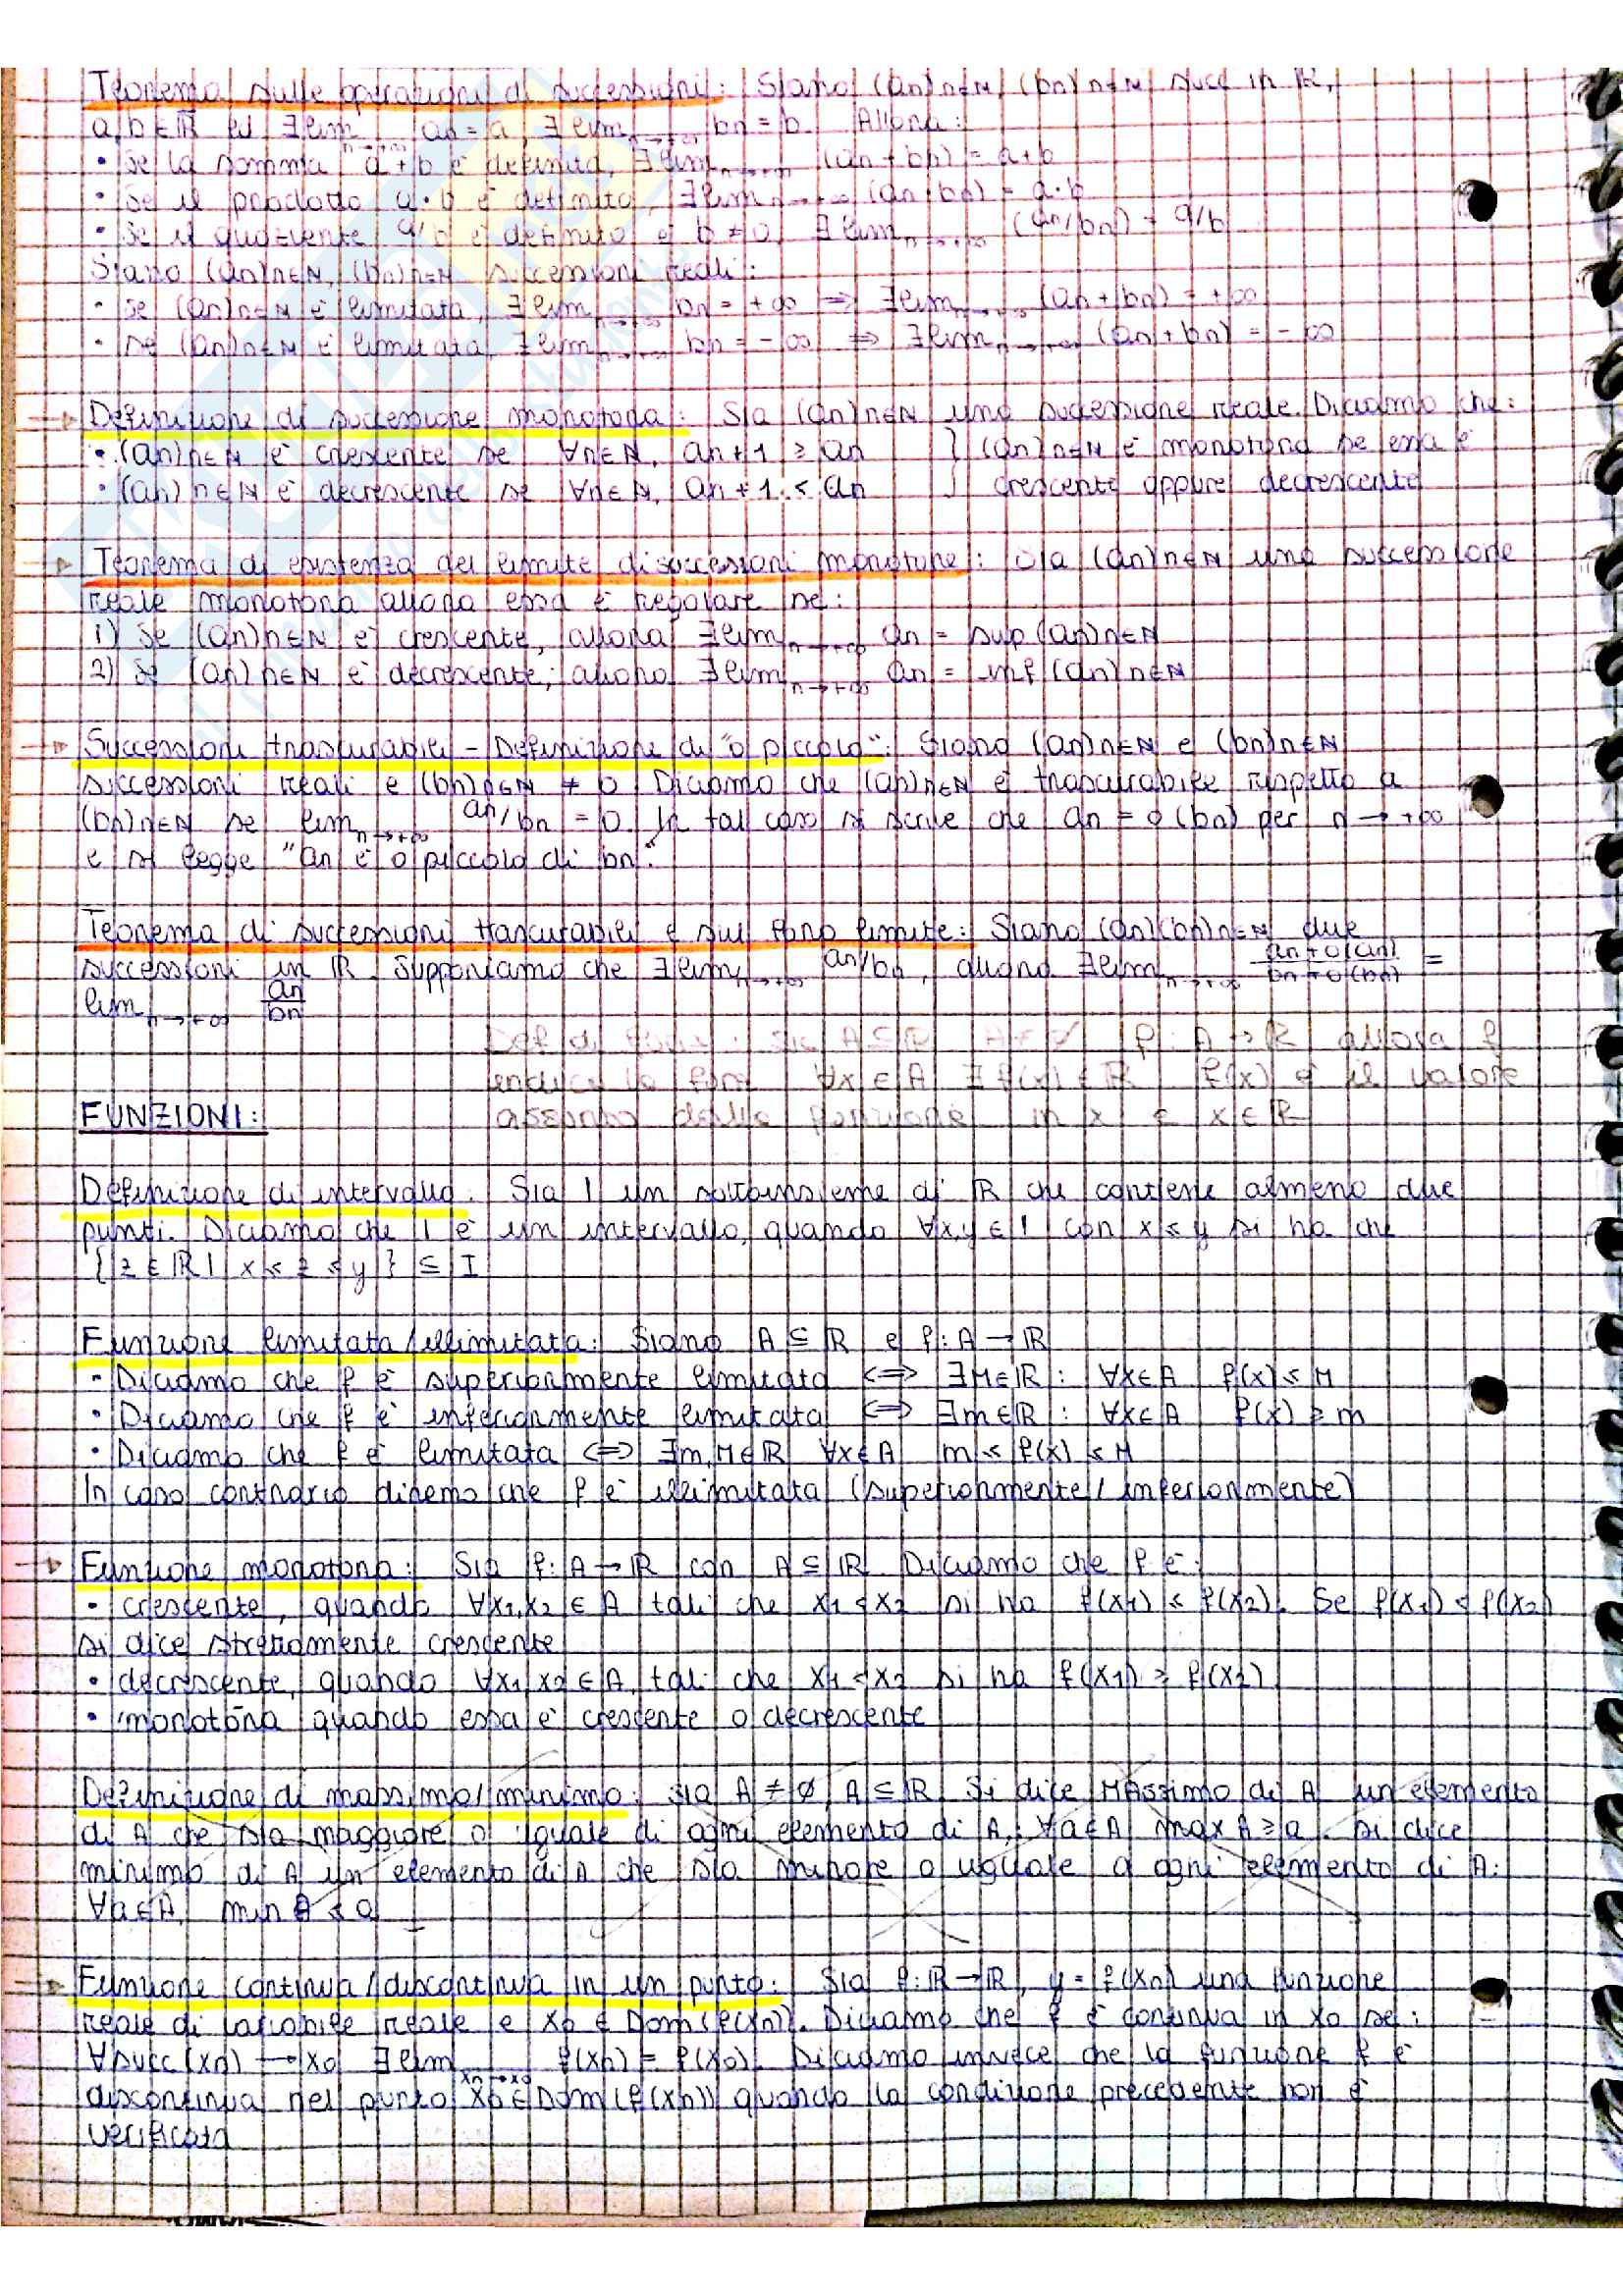 Teorema sulle operazioni di successioni: Siano (an)n∈N, (bn)n∈N succ in R,
a,b∈R ed ∃lim n→+∞ an = a, ∃lim n→+∞ bn = b. Allora:
• se la somma a+b è definita, ∃lim n→+∞ (an+bn) = a+b
• se il prodotto a·b è definito, ∃lim n→+∞ (an·bn) = a·b
• se il quoziente a/b è definito e b≠0, ∃lim n→+∞ (an/bn) = a/b
Siano (an)n∈N, (bn)n∈N successioni reali:
• se (an)n∈N è limitata, ∃lim n→+∞ bn = +∞ ⇒ ∃lim n→+∞ (an+bn) = +∞
• se (an)n∈N è limitata, ∃lim n→+∞ bn = -∞ ⇒ ∃lim n→+∞ (an+bn) = -∞
→ Definizione di successione monotona: Sia (an)n∈N una successione reale. Diciamo che:
• (an)n∈N è crescente se ∀n∈N, an+1 ≥ an } (an)n∈N è monotona se essa è
• (an)n∈N è decrescente se ∀n∈N, an+1 ≤ an } crescente oppure decrescente
→ Teorema di esistenza del limite di successioni monotone: Sia (an)n∈N una successione
reale monotona allora essa è regolare se:
1) Se (an)n∈N è crescente, allora ∃lim n→+∞ an = sup(an)n∈N
2) Se (an)n∈N è decrescente, allora ∃lim n→+∞ an = inf(an)n∈N
→ Successioni trascurabili - Definizione di "o piccolo": Siano (an)n∈N e (bn)n∈N
successioni reali e (bn)n∈N ≠ 0. Diciamo che (an)n∈N è trascurabile rispetto a
(bn)n∈N se lim n→+∞ an/bn = 0. In tal caso si scrive che an = o(bn) per n→+∞
e si legge "an è o piccolo di bn".
Teorema di successioni trascurabili e sul loro limite: Siano (an)(bn)n∈N due
successioni in R. Supponiamo che ∃lim n→+∞ an/bn, allora ∃lim n→+∞ an+o(an)/bn+o(bn) =
lim n→+∞ an/bn
Def di funz: Sia A⊆R A≠∅ f: A→R allora f
indica la funz ∀x∈A ∃ f(x)∈R f(x) è il valore
assunto dalla funzione in x e x∈R
FUNZIONI:
Definizione di intervallo: Sia I un sottoinsieme di R che contiene almeno due
punti. Diciamo che I è un intervallo, quando ∀x,y∈I con x≤y si ha che
{z∈R | x≤z≤y} ⊆ I
Funzione limitata/illimitata: Siano A⊆R e f: A→R
• Diciamo che f è superiormente limitata ⇔ ∃M∈R : ∀x∈A f(x)≤M
• Diciamo che f è inferiormente limitata ⇔ ∃m∈R : ∀x∈A f(x)≥m
• Diciamo che f è limitata ⇔ ∃m,M∈R ∀x∈A m≤f(x)≤M
In caso contrario diremo che f è illimitata (superiormente/inferiormente)
→ Funzione monotona: Sia f: A→R con A⊆R. Diciamo che f è:
• crescente, quando ∀x1,x2∈A tali che x1<x2 si ha f(x1)≤f(x2). Se f(x1)<f(x2)
si dice strettamente crescente
• decrescente, quando ∀x1,x2∈A, tali che x1<x2 si ha f(x1)≥f(x2)
• monotona quando essa è crescente o decrescente
Definizione di massimo/minimo: sia A≠∅, A⊆R. Si dice MAssimo di A un elemento
di A che sia maggiore o uguale di ogni elemento di A: ∀a∈A max A≥a. Si dice
minimo di A un elemento di A che sia minore o uguale a ogni elemento di A:
∀a∈A, min A≤a
→ Funzione continua/discontinua in un punto: Sia f: R→R, y=f(xn) una funzione
reale di variabile reale e x0∈Dom(f(xn)). Diciamo che f è continua in x0 se:
∀succ(xn)→x0 ∃lim xn→x0 f(xn) = f(x0). Diciamo invece che la funzione f è
discontinua nel punto x0∈Dom(f(xn)) quando la condizione precedente non è
verificata